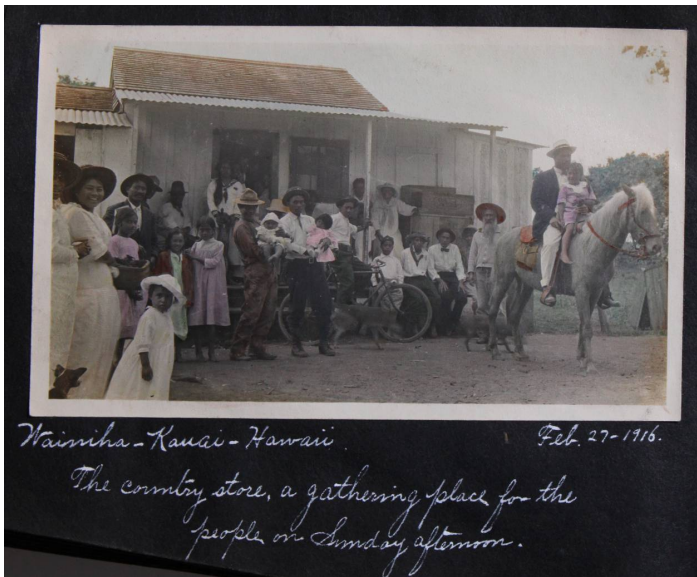 Wainiha - Kauai - Hawaii. Feb. 27 - 1916.
The country store, a gathering place for the
people on Sunday afternoon.